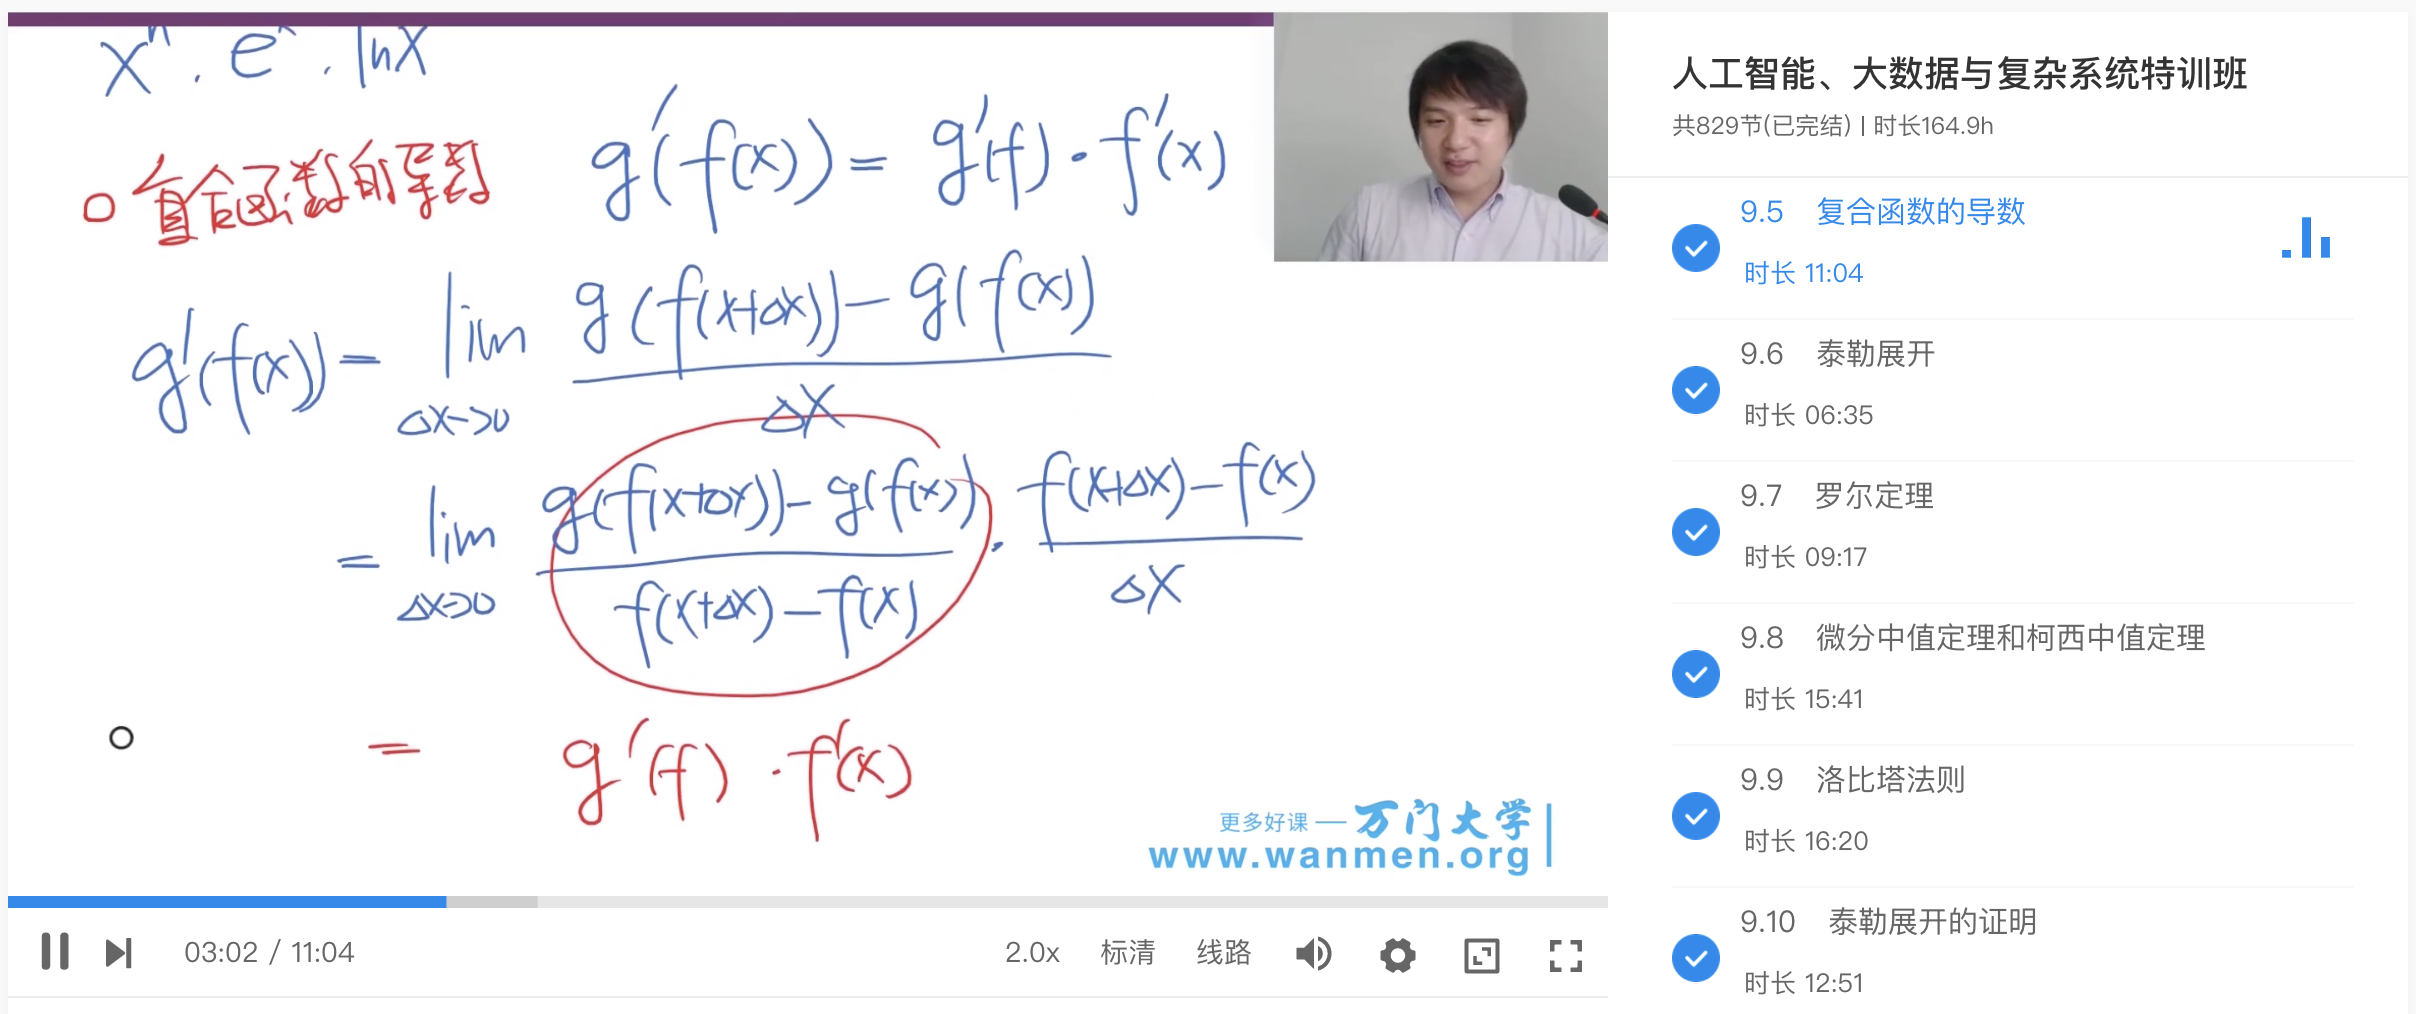 xⁿ . eˣ . lnx
复合函数的导数
g'(f(x)) = g'(f) · f'(x)
g'(f(x)) = lim Δx->0 g(f(x+Δx)) - g(f(x)) / Δx
= lim Δx->0 g(f(x+Δx)) - g(f(x)) / f(x+Δx) - f(x) · f(x+Δx) - f(x) / Δx
= g'(f) · f'(x)
更多好课 — 万门大学
www.wanmen.org
03:02 / 11:04
2.0x 标清 线路
人工智能、大数据与复杂系统特训班
共829节(已完结) | 时长164.9h
9.5 复合函数的导数
时长 11:04
9.6 泰勒展开
时长 06:35
9.7 罗尔定理
时长 09:17
9.8 微分中值定理和柯西中值定理
时长 15:41
9.9 洛比塔法则
时长 16:20
9.10 泰勒展开的证明
时长 12:51